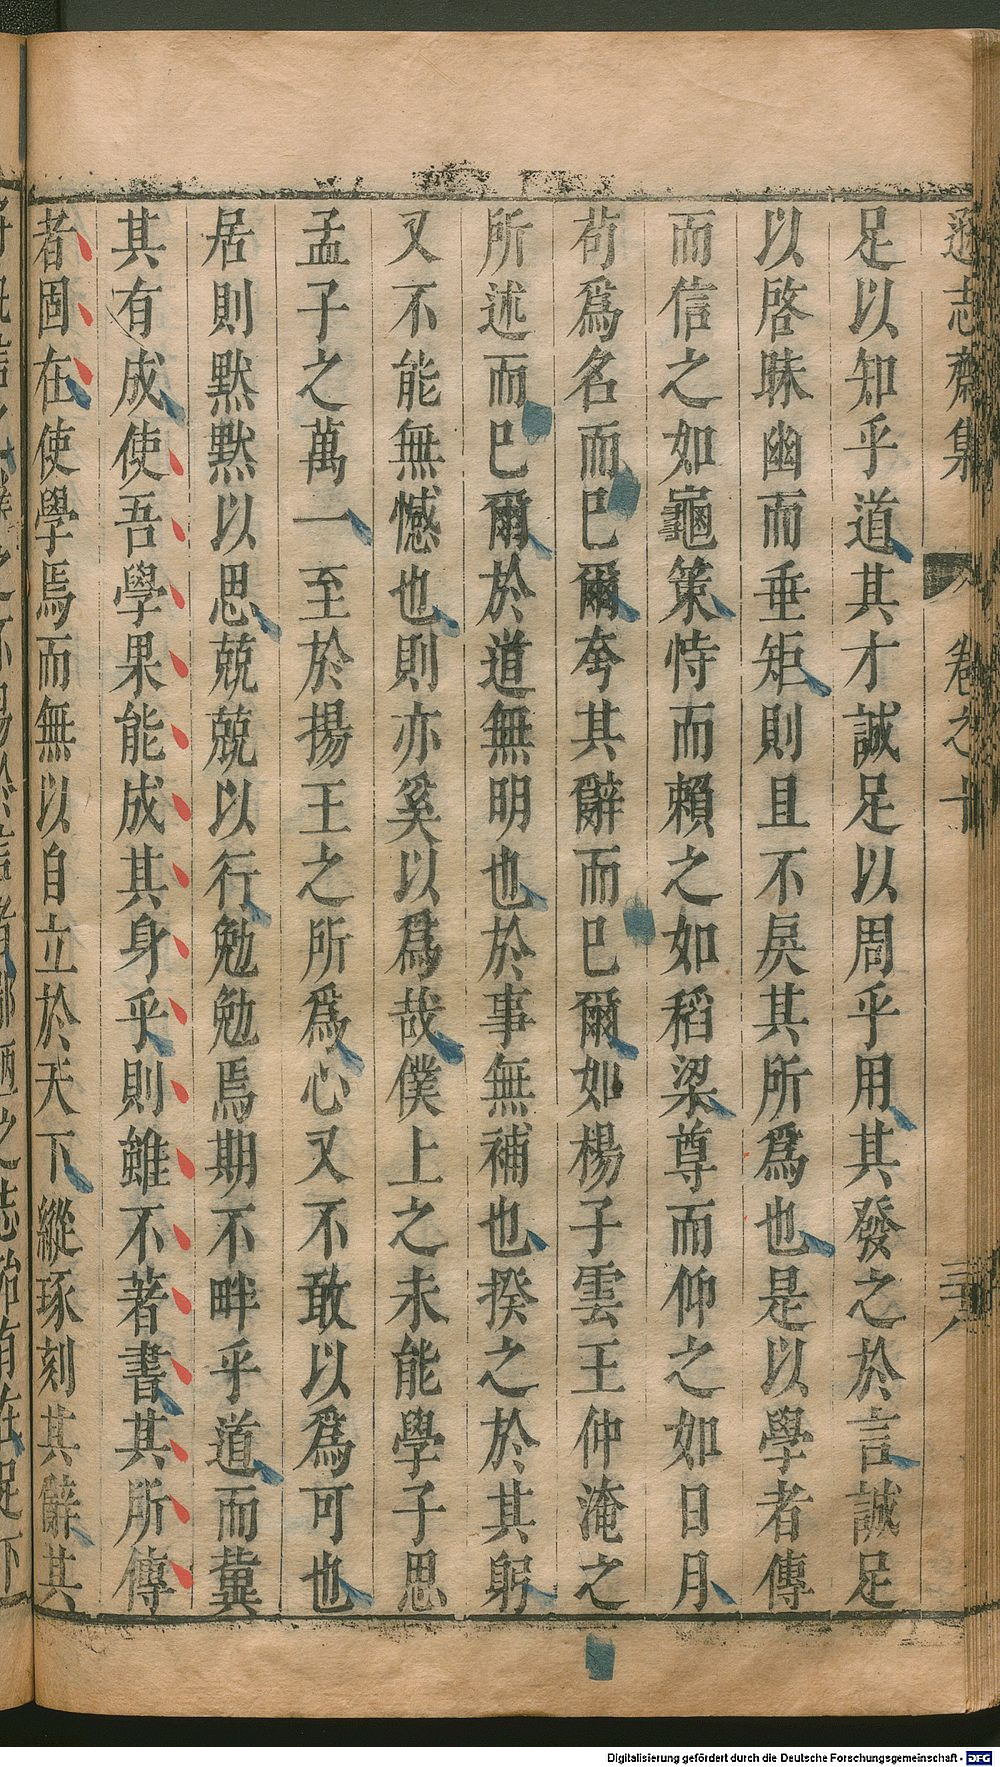 遜志齋集 卷之十 三十八
足以知乎道其才誠足以周乎用其發之於言誠足
以啓昧幽而垂矩則且不矣其所爲也是以學者傳
而信之如龜策恃而賴之如稻梁尊而仰之如日月
苟爲名而已爾夸其辭而已爾如楊子雲王仲淹之
所述而已爾於道無明也於事無補也揆之於其躬
又不能無憾也則亦奚以爲哉僕上之未能學子思
孟子之萬一至於揚王之所爲心又不敢以爲可也
居則默默以思兢兢以行勉勉焉期不畔乎道而冀
其有成使吾學果能成其身乎則雖不著書其所傳
者固在使學焉而無以自立於天下縱琢刻其辭其
Digitalisierung gefördert durch die Deutsche Forschungsgemeinschaft - DFG